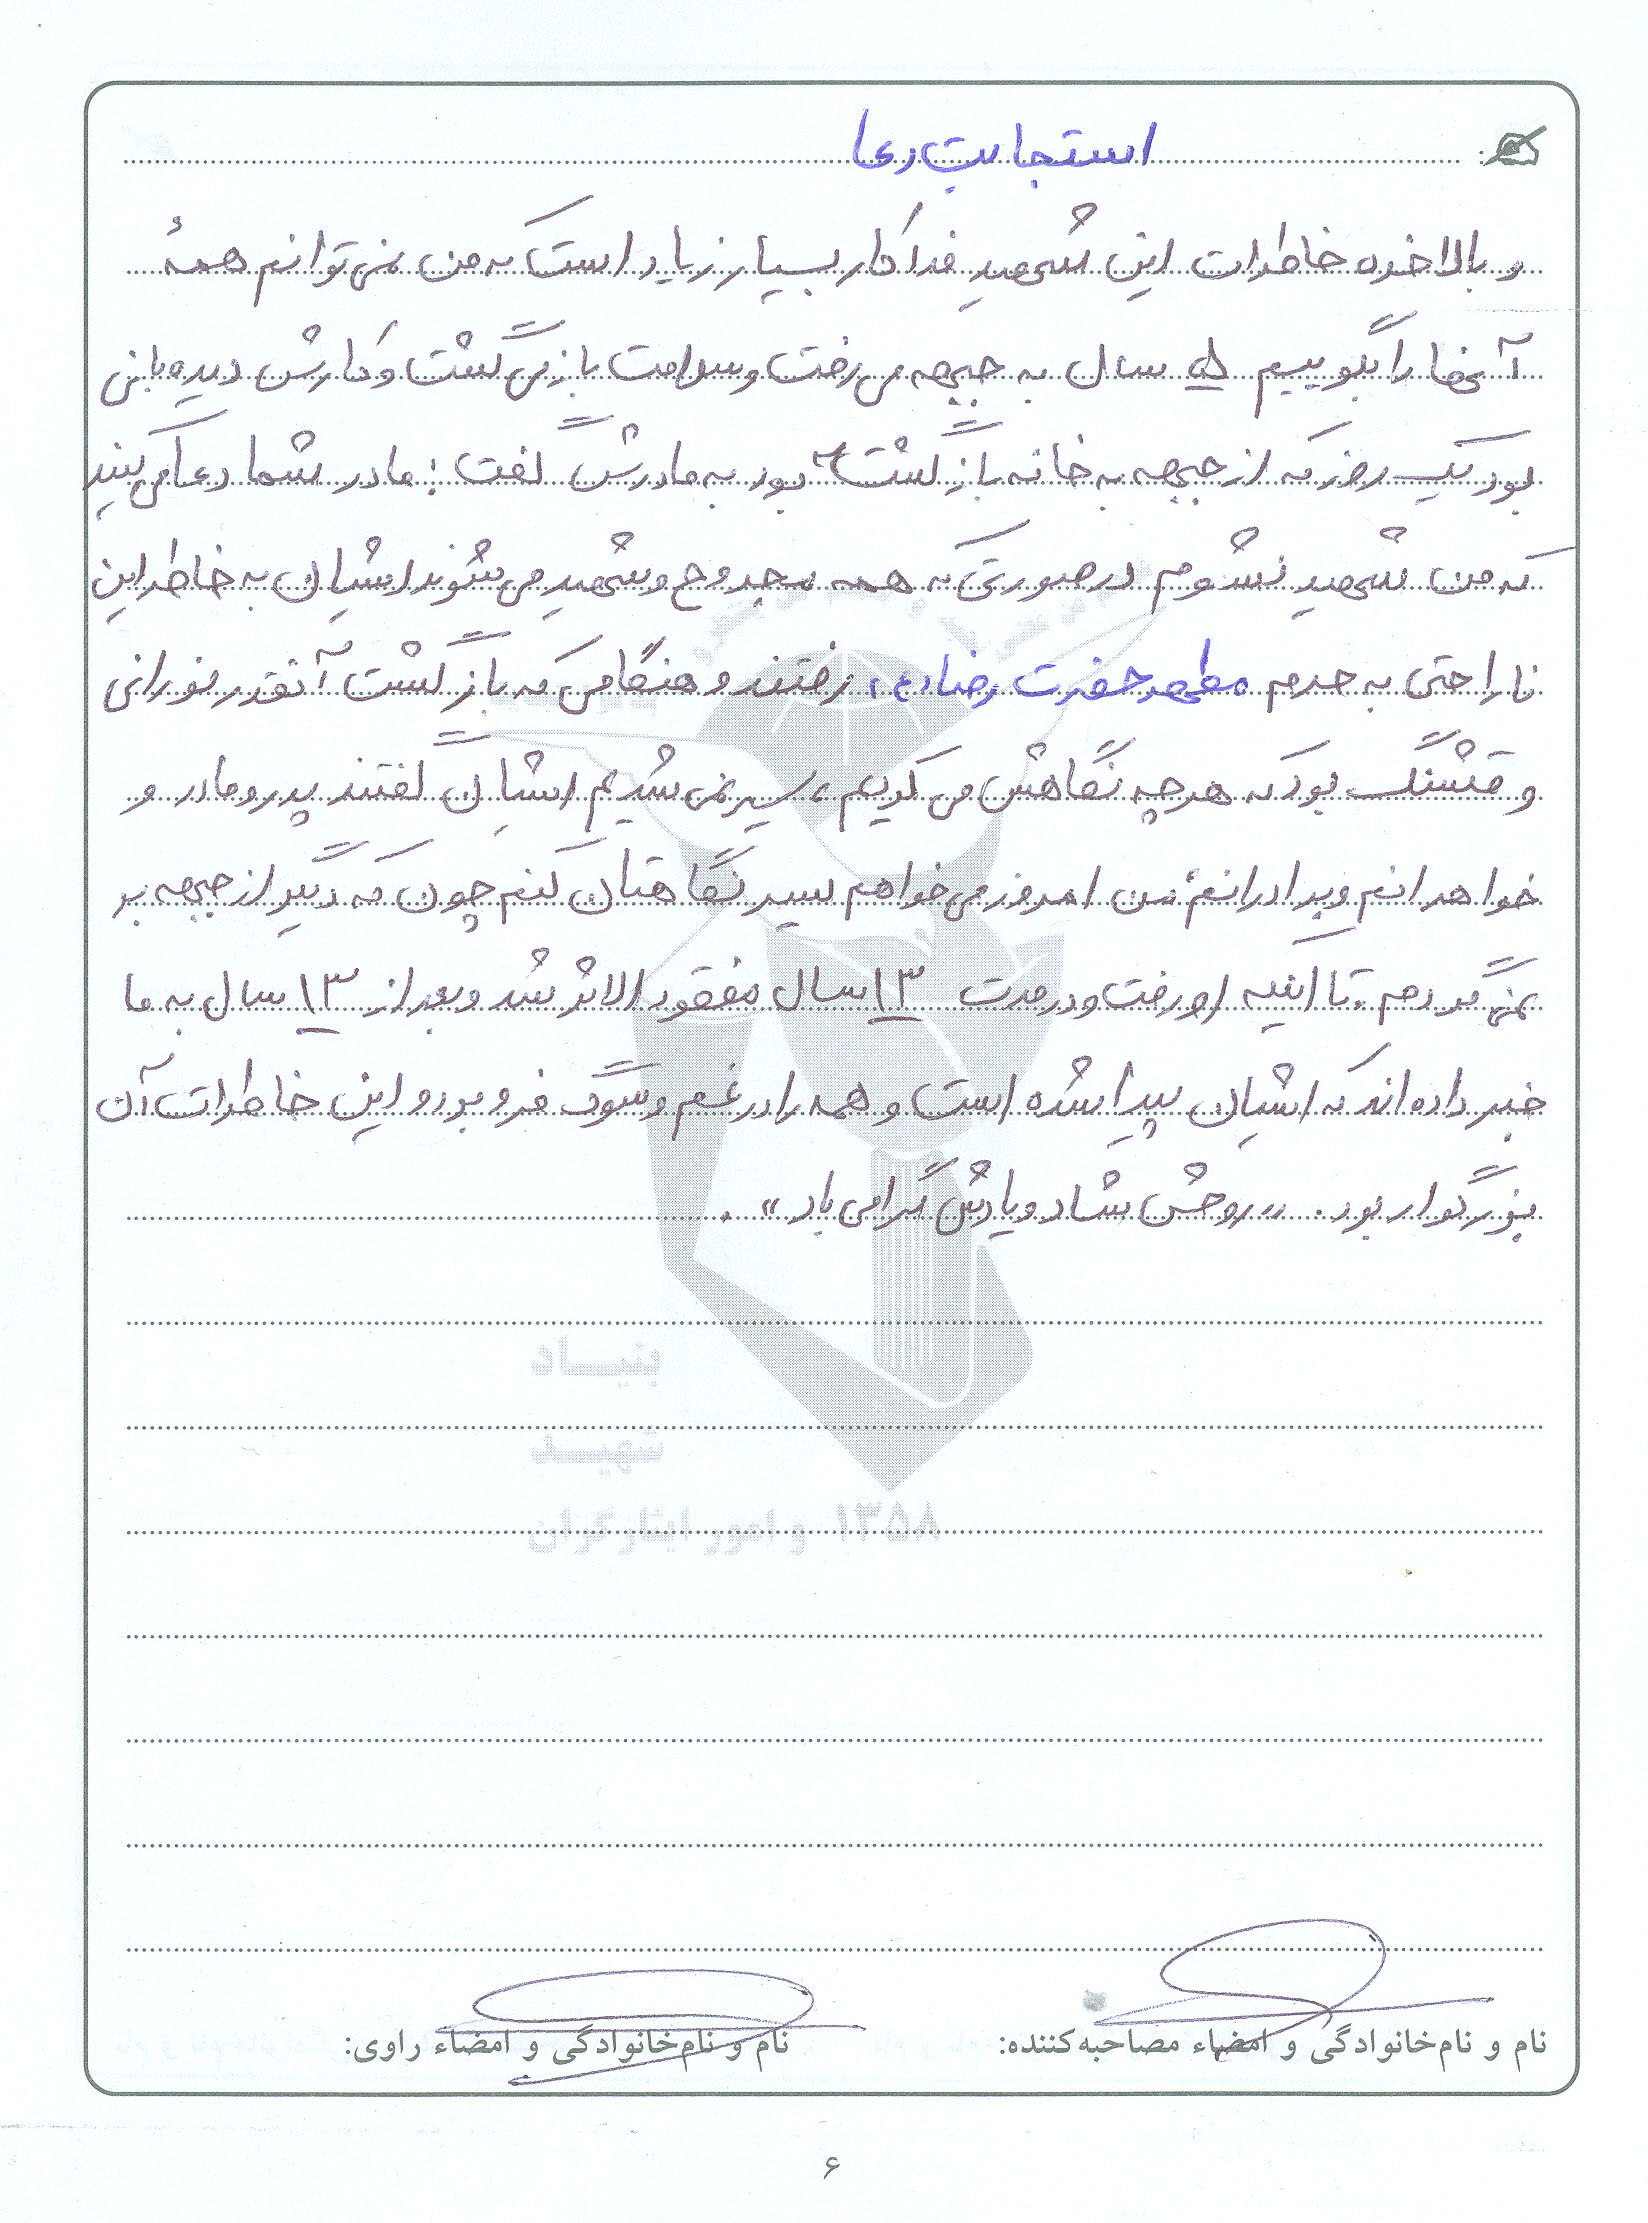 استجابت دعا
و بالاخره خاطرات این شهید فداکار بسیار زیاد است که من نمی توانم همهٔ
آنها را بگوییم ۵ سال به جبهه می رفت و سلامت باز می گشت و کارش دیده بانی
بود یک روز که از جبهه به خانه باز گشته بود به مادرش گفت: مادر شما دعا می کنید
که من شهید نشوم در صورتی که همه مجروح و شهید می شوند ایشان به خاطر این
ناراحتی به حرم مطهر حضرت رضا (ع) رفتند و هنگامی که باز گشت آنقدر نورانی
و قشنگ بود که هر چه نگاهش می کردیم، سیر نمی شدیم ایشان گفتند پدر و مادر و
خواهرانم و برادرانم من امروز می خواهم سیر نگاهتان کنم چون که دیگر از جبهه بر
نمی گردم. تا اینکه او رفت و در مدت ۱۳ سال مفقود الاثر شد و بعد از ۱۳ سال به ما
خبر داده اند که ایشان پیدا شده است و همه را در غم و سوگ فرو برد و این خاطرات آن
بزرگوار بود. «روحش شاد و یادش گرامی باد».
بنیاد
شهید
۱۳۵۸ و امور ایثارگران
نام و نام‌خانوادگی و امضاء مصاحبه‌کننده: نام و نام‌خانوادگی و امضاء راوی:
۶